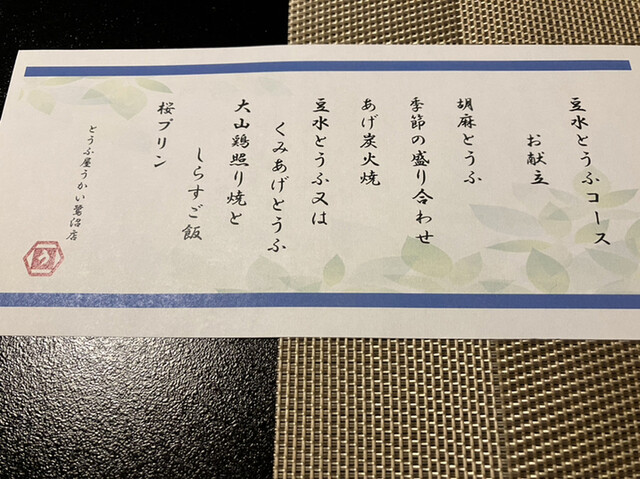 豆水とうふコース
お献立
胡麻とうふ
季節の盛り合わせ
あげ炭火焼
豆水とうふ又は
くみあげとうふ
大山鶏照り焼と
しらすご飯
桜プリン
とうふ屋うかい鷺沼店